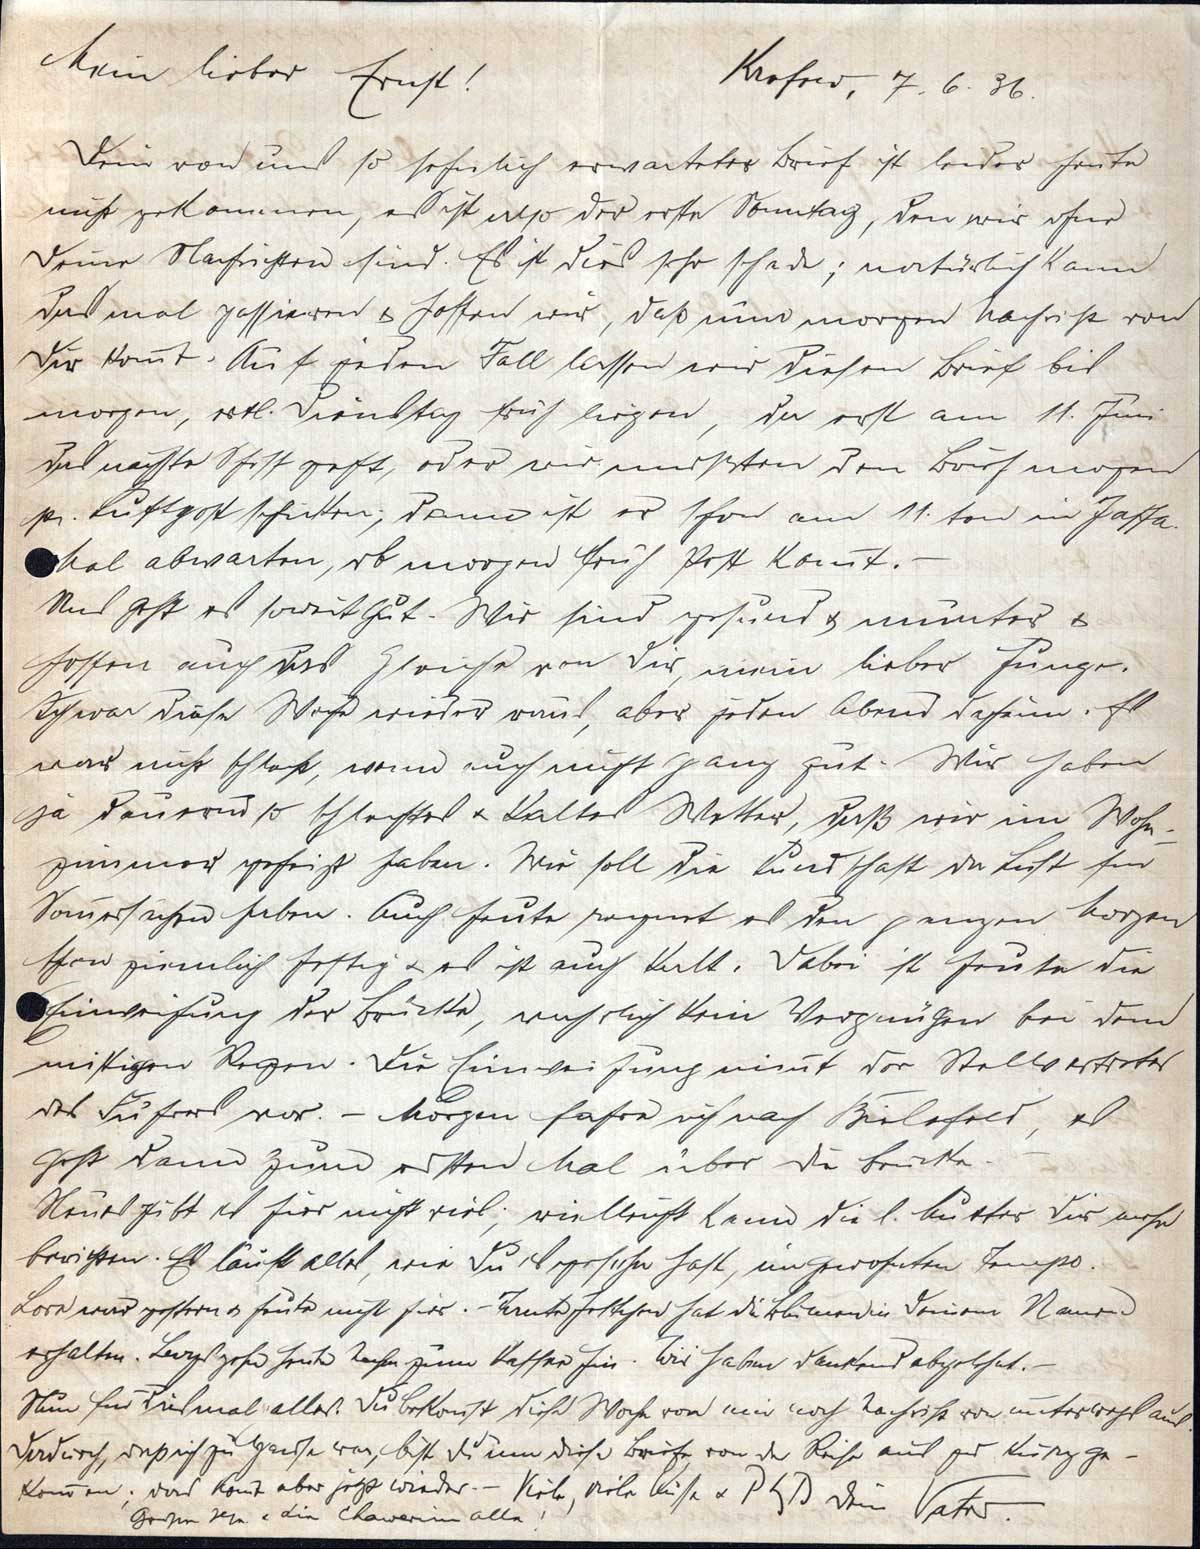 Mein lieber Ernst!
Krefeld, 7. 6. 36.
Dein von uns so sehnlich erwarteter Brief ist leider heute
nicht gekommen, es ist also der erste Sonntag, den wir ohne
Deine Nachrichten sind. Es ist dies sehr schade; natürlich kann
das mal passieren & hoffen wir, daß nun morgen Nachricht von
Dir komt. Auf jeden Fall lassen wir diesen Brief bis
morgen, evtl. Dienstag früh liegen, da erst am 11. Juni
das nächste Schiff geht, oder wir den Brief morgen
pr. Luftpost schicken, dann ist er schon am 11. ten in Jaffa.
Mal abwarten, ob morgen früh Post komt. —
Uns geht es soweit gut. Wir sind gesund & munter &
hoffen auch das Gleiche von Dir, mein lieber Junge.
Ich war diese Woche wieder raus, aber jeden Abend daheim. Es
war nicht schlecht, wenn auch nicht ganz gut. Wir haben
ja dauernd so schlechtes & kaltes Wetter, daß wir im Wohn-
zimmer geheizt haben. Wie soll die Kundschaft da Lust für
Sommersachen haben. Auch heute regnet es den ganzen Morgen
schon ziemlich heftig & es ist auch kalt. Dabei ist heute die
Einweihung der Brücke, wahrlich kein Vergnügen bei dem
mistigen Regen. Die Einweihung nimt der Stellvertreter
des Führers vor. — Morgen fahre ich nach Bielefeld, es
geht dann zum ersten Mal über die Brücke. —
Neues gibt es hier nicht viel, vielleicht kann die l. Mutter Dir mehr
berichten. Es läuft alles, wie Du es gesehen hast, im gewohnten Tempo.
Lore war gestern & heute nicht hier. — Tante hat die Blumen in Deinem Namen
erhalten. gehn heute Nachm zum Kaffee hin. Wir haben dankend abgelehnt. —
Nun für diesmal alles. Du bekomst diese Woche von mir noch Nachricht von unterwegs aus.
Dadurch, daß ich zu Hause war, bist Du um diese Briefe von der Reise aus zu kurz ge-
kommen, das komt aber jetzt wieder. — Viele, viele Küsse & Dein Vater.
Grüße & die Chawerim alle!